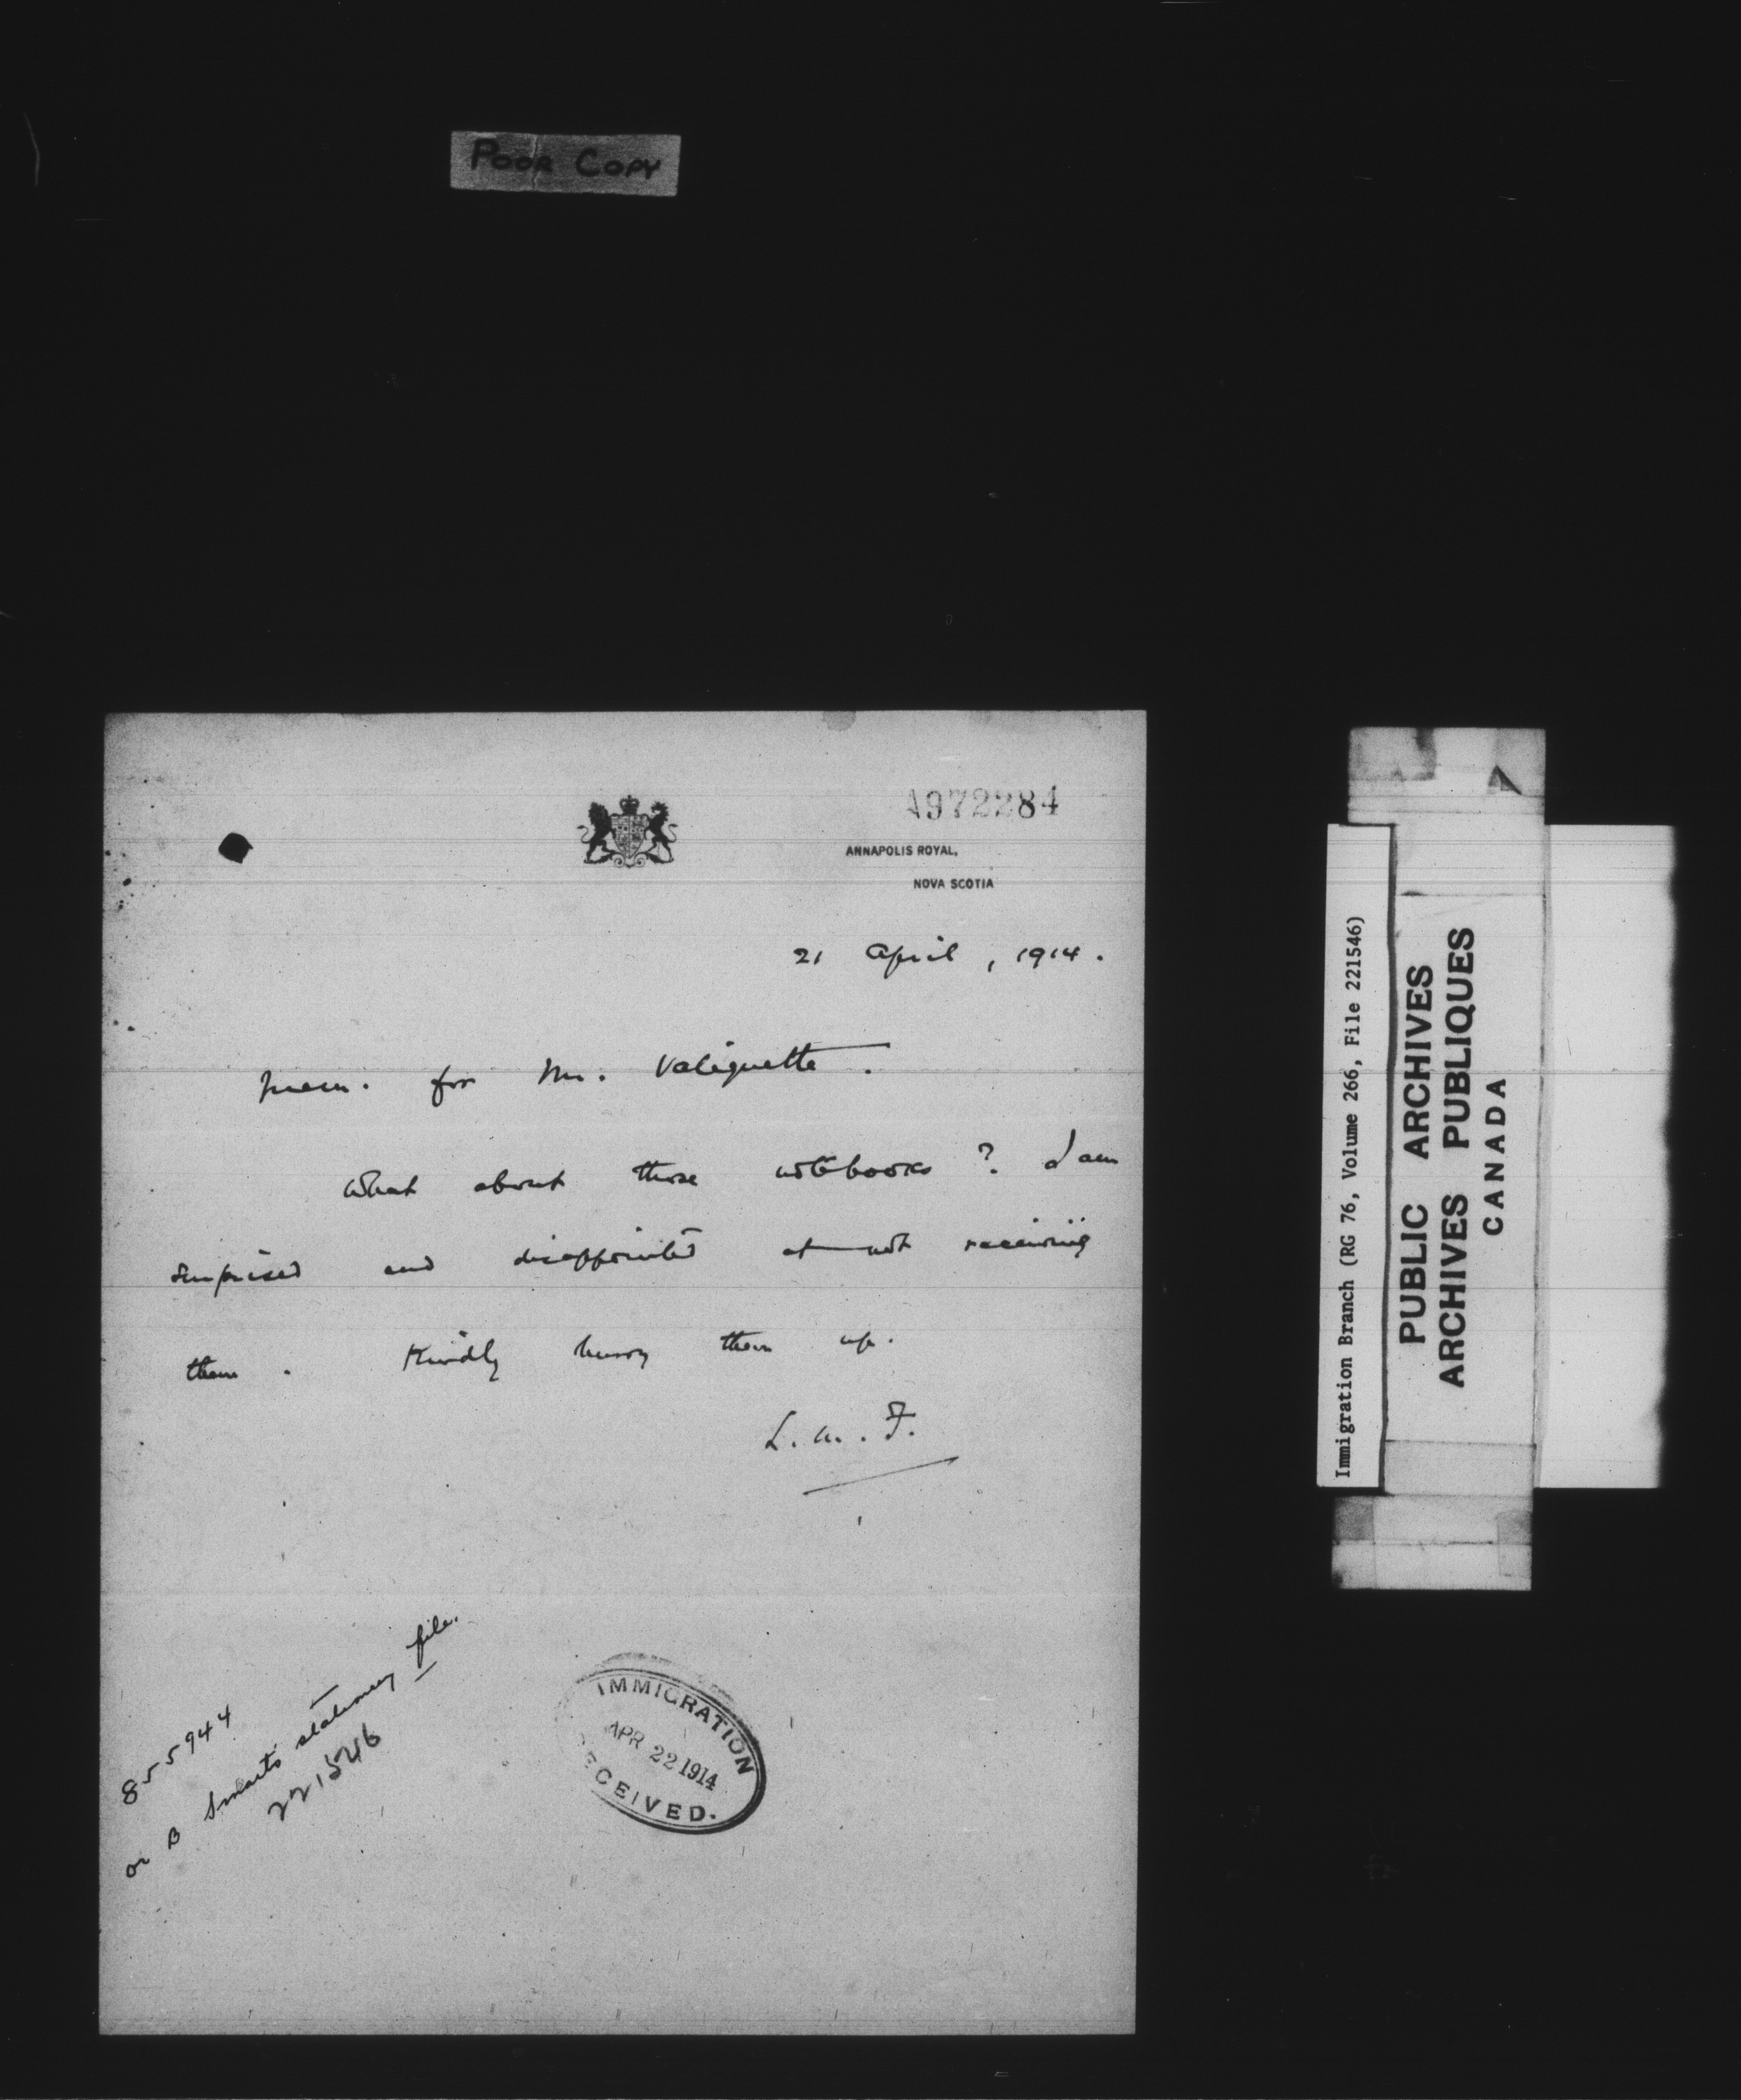 POOR COPY
A972284
ANNAPOLIS ROYAL,
NOVA SCOTIA
21 April, 1914.
Mem. for Mr. Valiquette.
What about those notebooks? I am
surprised and disappointed at not receiving
them. Kindly hurry them up.
L.M.F.
855944
or B Smart's stationery file.
221546
IMMIGRATION
APR 22 1914
RECEIVED.
Immigration Branch (RG 76, Volume 266, File 221546)
PUBLIC ARCHIVES
ARCHIVES PUBLIQUES
CANADA